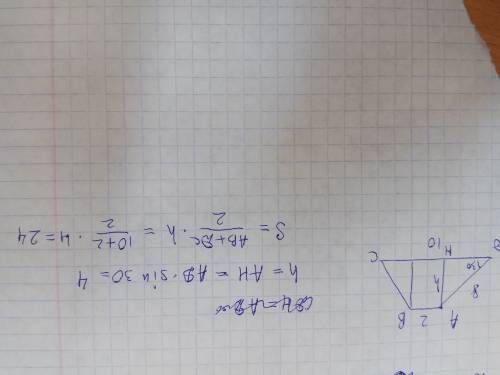 h = AH = AD · sin 30 = 4
S = \frac{AB + DC}{2} · h = \frac{10+2}{2} · 4 = 24
A
B
2
8
h
30
D
H
C
10